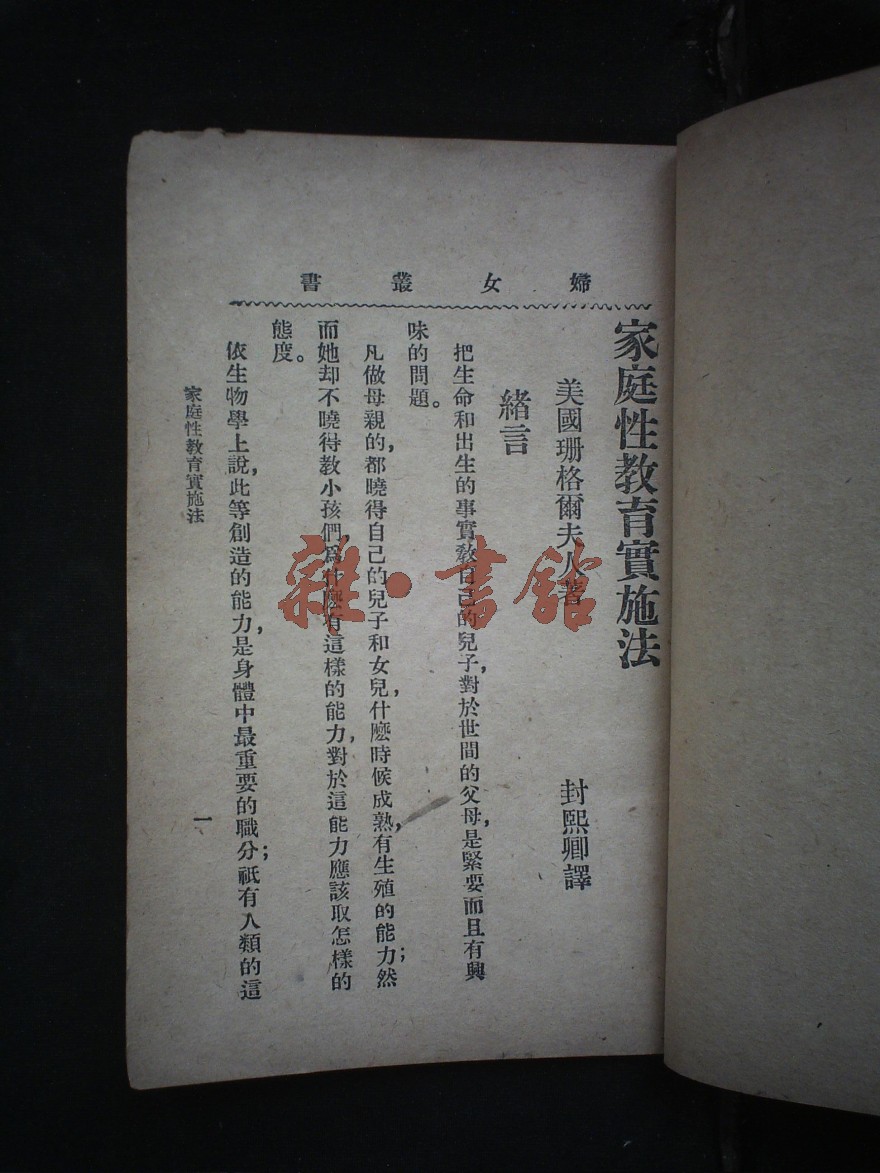 婦女叢書
家庭性教育實施法
美國珊格爾夫人著 封熙卿譯
緒言
把生命和出生的事實教自己的兒子,對於世間的父母,是緊要而且有興
味的問題。
凡做母親的,都曉得自己的兒子和女兒,什麼時候成熟,有生殖的能力;然
而她却不曉得教小孩們,爲什麼有這樣的能力,對於這能力應該取怎樣的
態度。
依生物學上說,此等創造的能力,是身體中最重要的職分;祇有人類的這
家庭性教育實施法
一
雜·書館